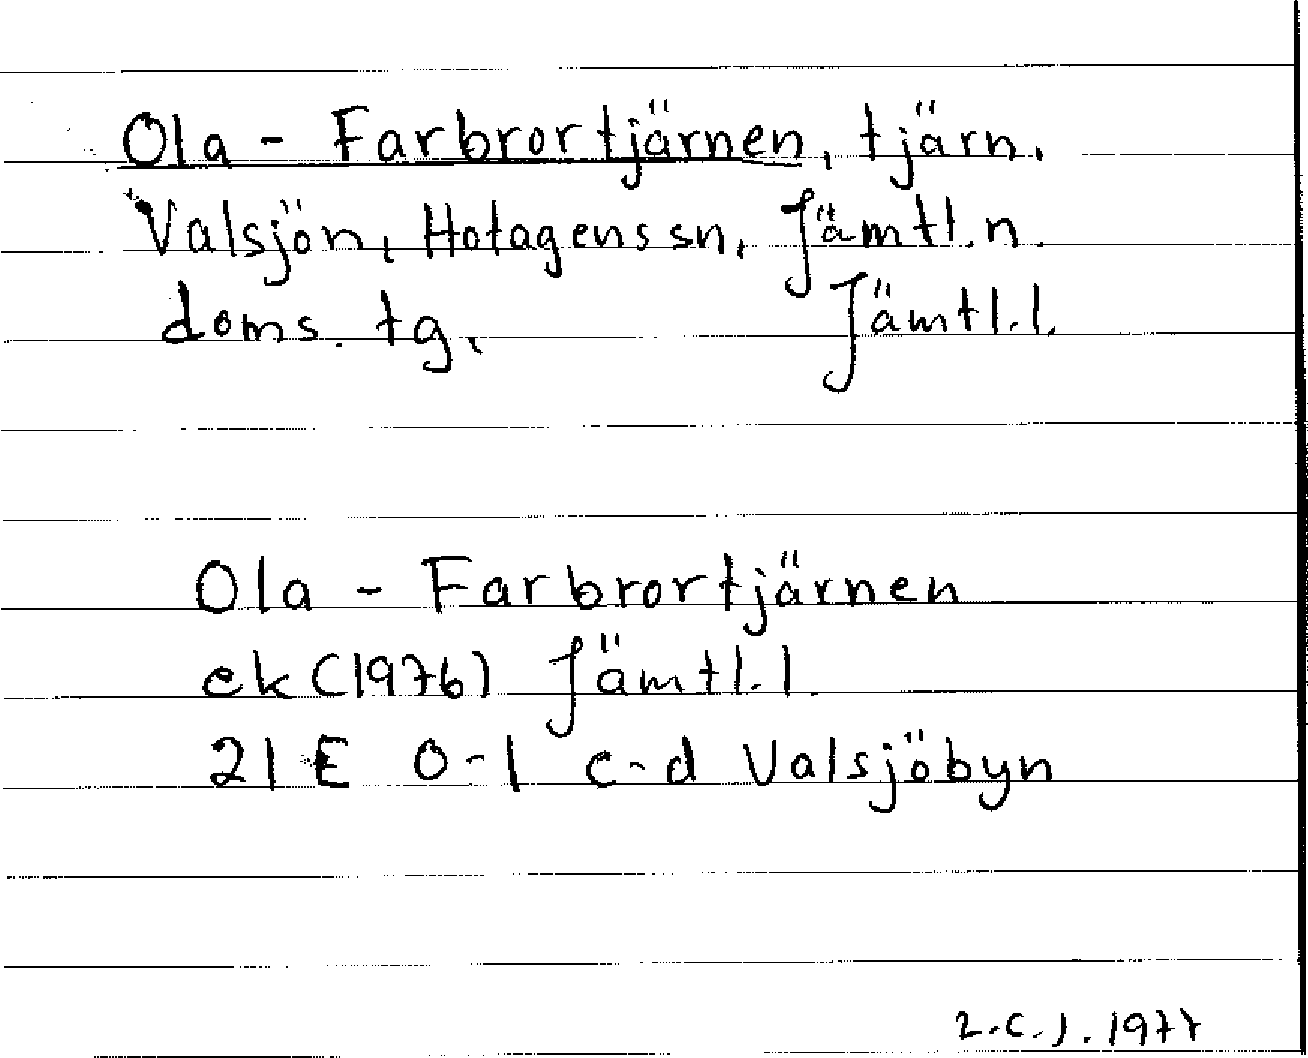 Ola - Farbrortjärnen, tjärn.
Valsjön, Hotagens sn, Jämtl. n.
doms. tg, Jämtl. l.
Ola - Farbrortjärnen
ek (1976) Jämtl. l.
21 E 0-1 c-d Valsjöbyn
1977